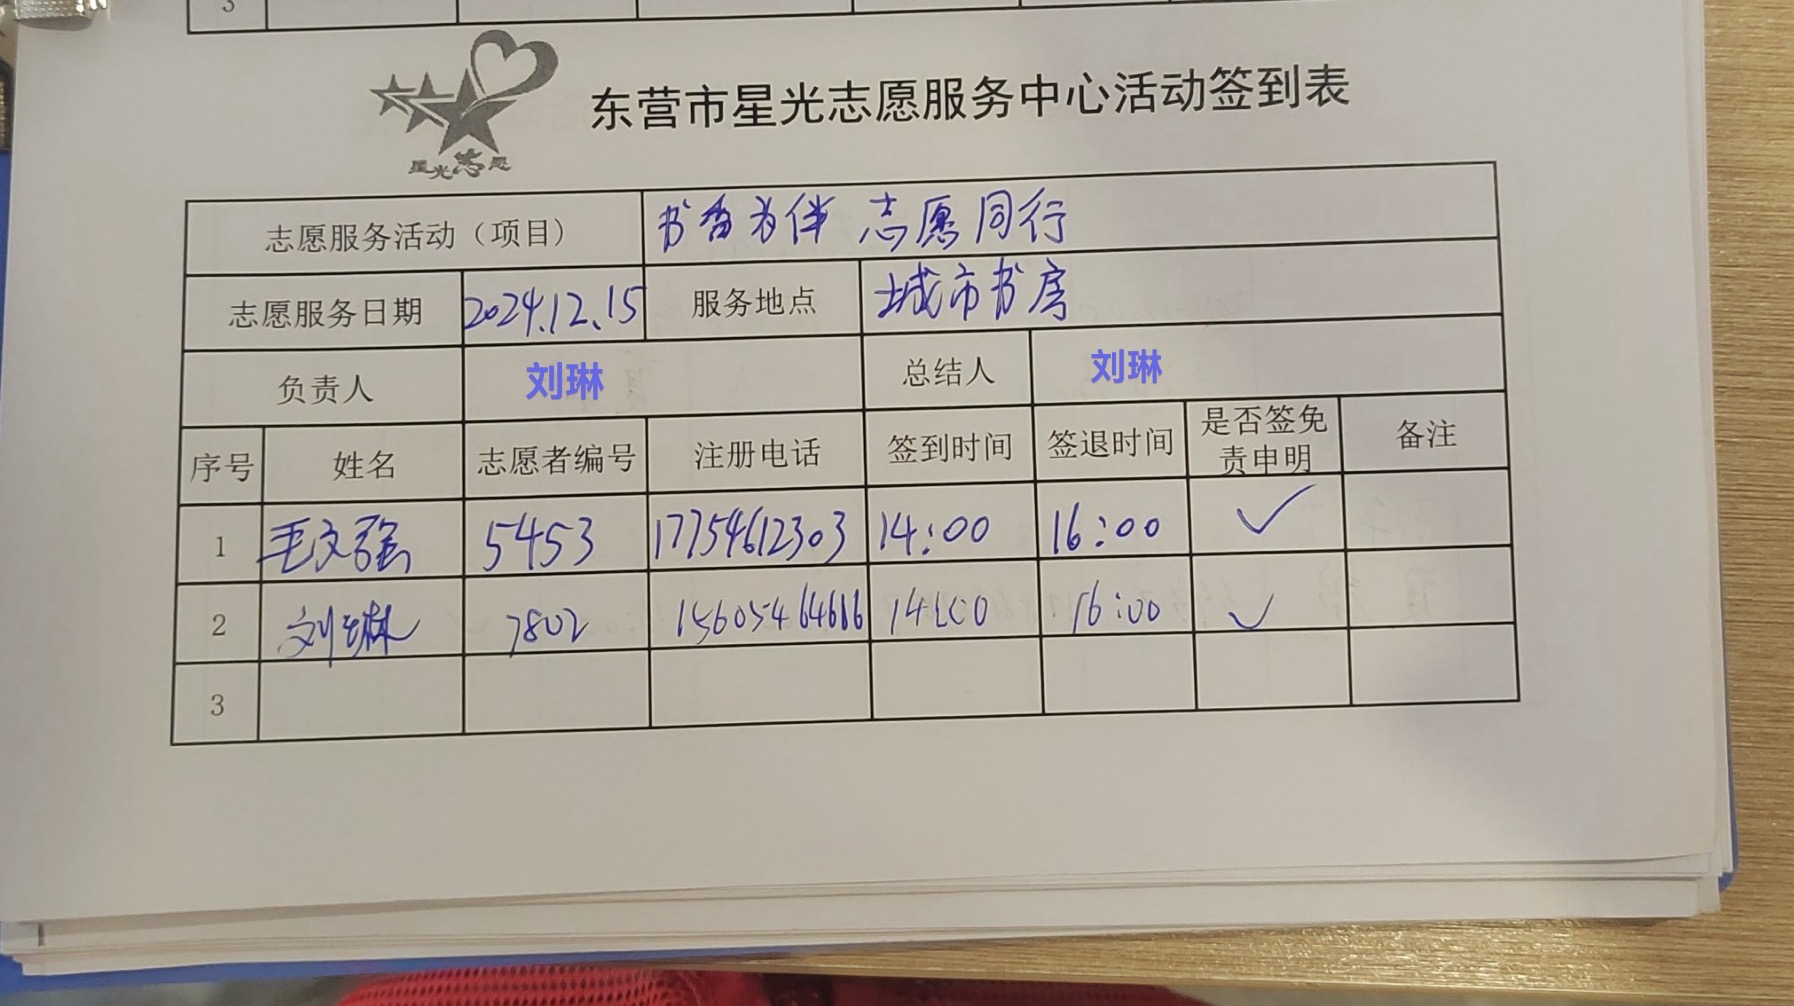 3
星光志愿
东营市星光志愿服务中心活动签到表
志愿服务活动（项目） 书香为伴 志愿同行
志愿服务日期 2024.12.15 服务地点 城市书房
负责人 刘琳 总结人 刘琳
序号 姓名 志愿者编号 注册电话 签到时间 签退时间 是否签免责申明 备注
1 毛文强 5453 17754612303 14:00 16:00 ✓
2 刘琳 7802 15605464616 14:00 16:00 ✓
3